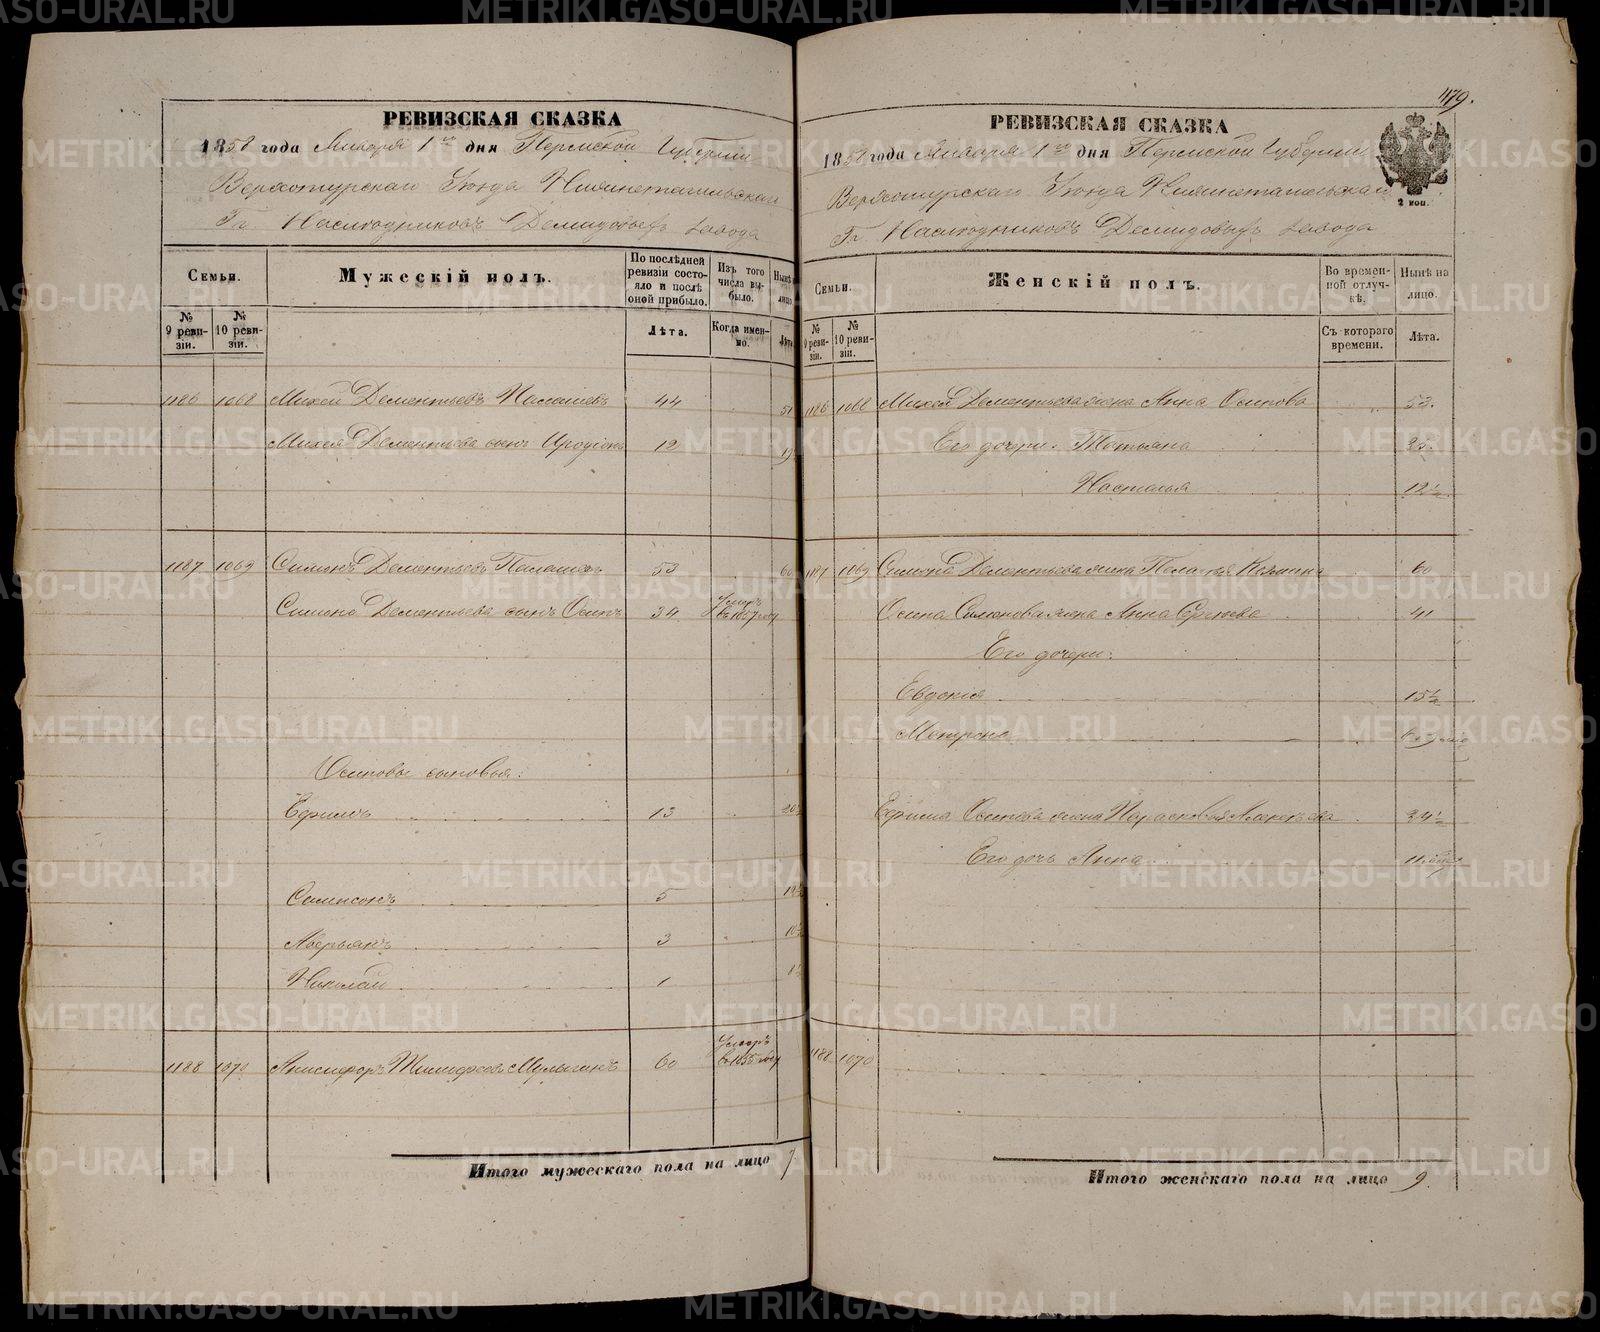 РЕВИЗСКАЯ СКАЗКА
1858 года Января 1го дня Пермской Губернии
Верхотурскаго Уезда Нижнетагильскаго
Гг. Наследниковъ Демидовыхъ завода
Семьи.
Мужескій полъ.
По послѣдней ревизіи состояло и послѣ оной прибыло.
Изъ того числа выбыло.
Нынѣ
лицо
№ 9 ревизіи.
№ 10 ревизіи.
Лѣта.
Когда именно.
Лѣта
1186 1068 Михей Дементьевъ 44 51
Михея Дементьева сынъ Иродіонъ 12 19
1187 1069 Симонъ Дементьевъ 53 60
Симона Дементьева сынъ Осипъ 34 Умеръ въ 1857 году
Осиповы сыновья:
Ефимъ 13 20½
Сампсонъ 5 12½
Аверьянъ 3 10½
Николай 1
1188 1070 Анисифоръ Тимофеевъ 60 Умеръ въ 1855 году
Итого мужескаго пола на лицо 7
479.
РЕВИЗСКАЯ СКАЗКА
1858 года Января 1го дня Пермской Губерніи
Верхотурскаго Уезда Нижнетагильскаго
Гг. Наследниковъ Демидовыхъ завода
2 коп.
Семьи.
Женскій полъ.
Во временной отлучкѣ.
Нынѣ на лицо.
№ 9 ревизіи.
№ 10 ревизіи.
Съ котораго времени.
Лѣта.
1186 1068 Михея Дементьева жена Анна Осипова 53.
Его дочери: Татьяна
Настасья 12½
1187 1069 Симона Дементьева жена Пелагея 60
Осипа Симонова жена Анна Сергеева 41
Его дочери:
Евдокія 15½
Матрона
Ефима Осипова жена Парасковья Алексеева 24½
Его дочь Анна
1188 1070
Итого женскаго пола на лицо 9.
METRIKI.GASO-URAL.RU